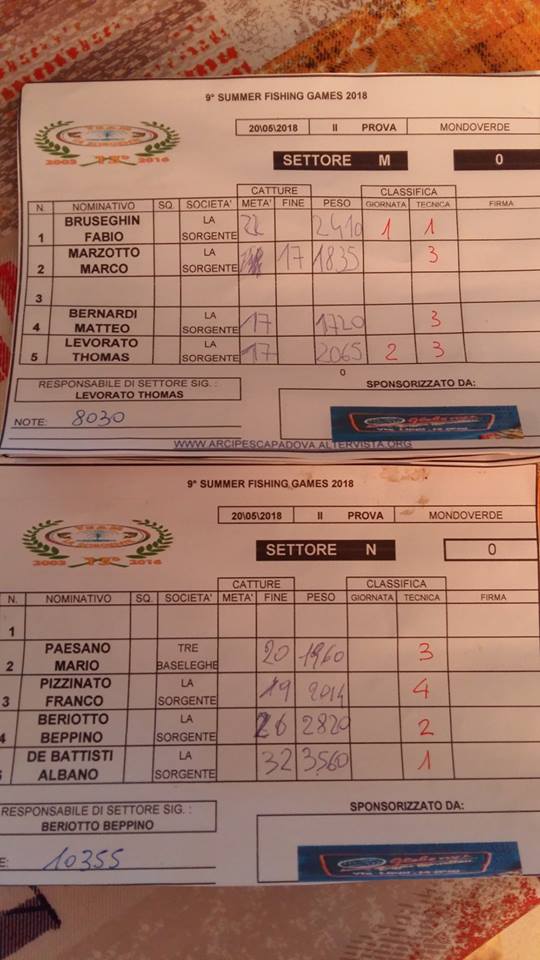 9° SUMMER FISHING GAMES 2018
20\05\2018 II PROVA MONDOVERDE
2003 15° 2016
SETTORE M 0
CATTURE CLASSIFICA
N. NOMINATIVO SQ. SOCIETA' META' FINE PESO GIORNATA TECNICA FIRMA
1 BRUSEGHIN FABIO LA SORGENTE 22 2410 1 1
2 MARZOTTO MARCO LA SORGENTE 17 1835 3
3
4 BERNARDI MATTEO LA SORGENTE 17 1720 3
5 LEVORATO THOMAS LA SORGENTE 17 2065 2 3
0
RESPONSABILE DI SETTORE SIG. : SPONSORIZZATO DA:
LEVORATO THOMAS
NOTE: 8030
WWW.ARCIPESCAPADOVA.ALTERVISTA.ORG
9° SUMMER FISHING GAMES 2018
20\05\2018 II PROVA MONDOVERDE
2003 15° 2016
SETTORE N 0
CATTURE CLASSIFICA
N. NOMINATIVO SQ. SOCIETA' META' FINE PESO GIORNATA TECNICA FIRMA
1
2 PAESANO MARIO TRE BASELEGHE 20 1960 3
3 PIZZINATO FRANCO LA SORGENTE 19 2014 4
4 BERIOTTO BEPPINO LA SORGENTE 26 2820 2
DE BATTISTI ALBANO LA SORGENTE 32 3560 1
RESPONSABILE DI SETTORE SIG. : SPONSORIZZATO DA:
BERIOTTO BEPPINO
E: 10355